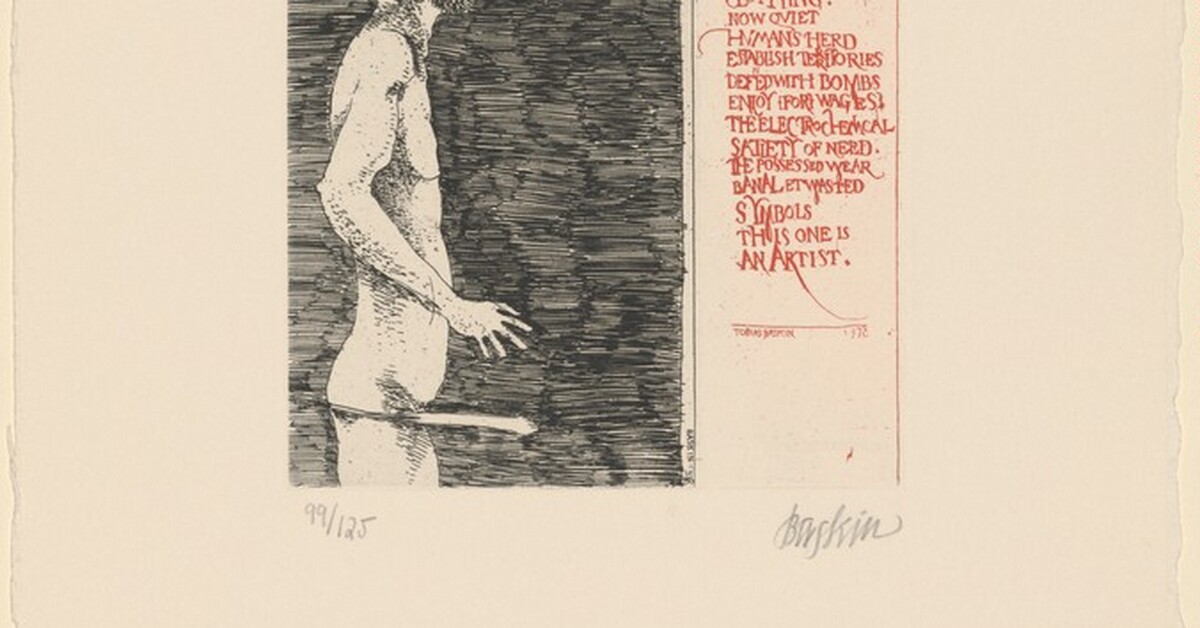 NOW QUIET
HVMAN'S HERD
ESTABLISH TERRITORIES
DEFED WITH BOMBS
ENJOY (FOR) WAGES)
THE ELECTROCHEMICAL
SATIETY OF NEED.
THE POSSESSED WEAR
BANAL ET WASTED
SYMBOLS
THIS ONE IS
AN ARTIST.
TOBIAS BASKIN
99/125
Baskin